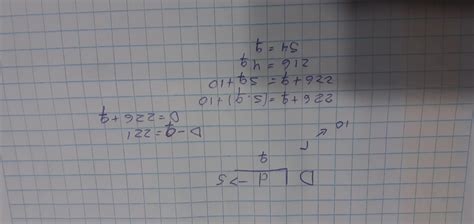 D d -> 5
q
r
10
D-q=221
D=226+q
226+q=(5·q)+10
226+q=5q+10
216=4q
54=q